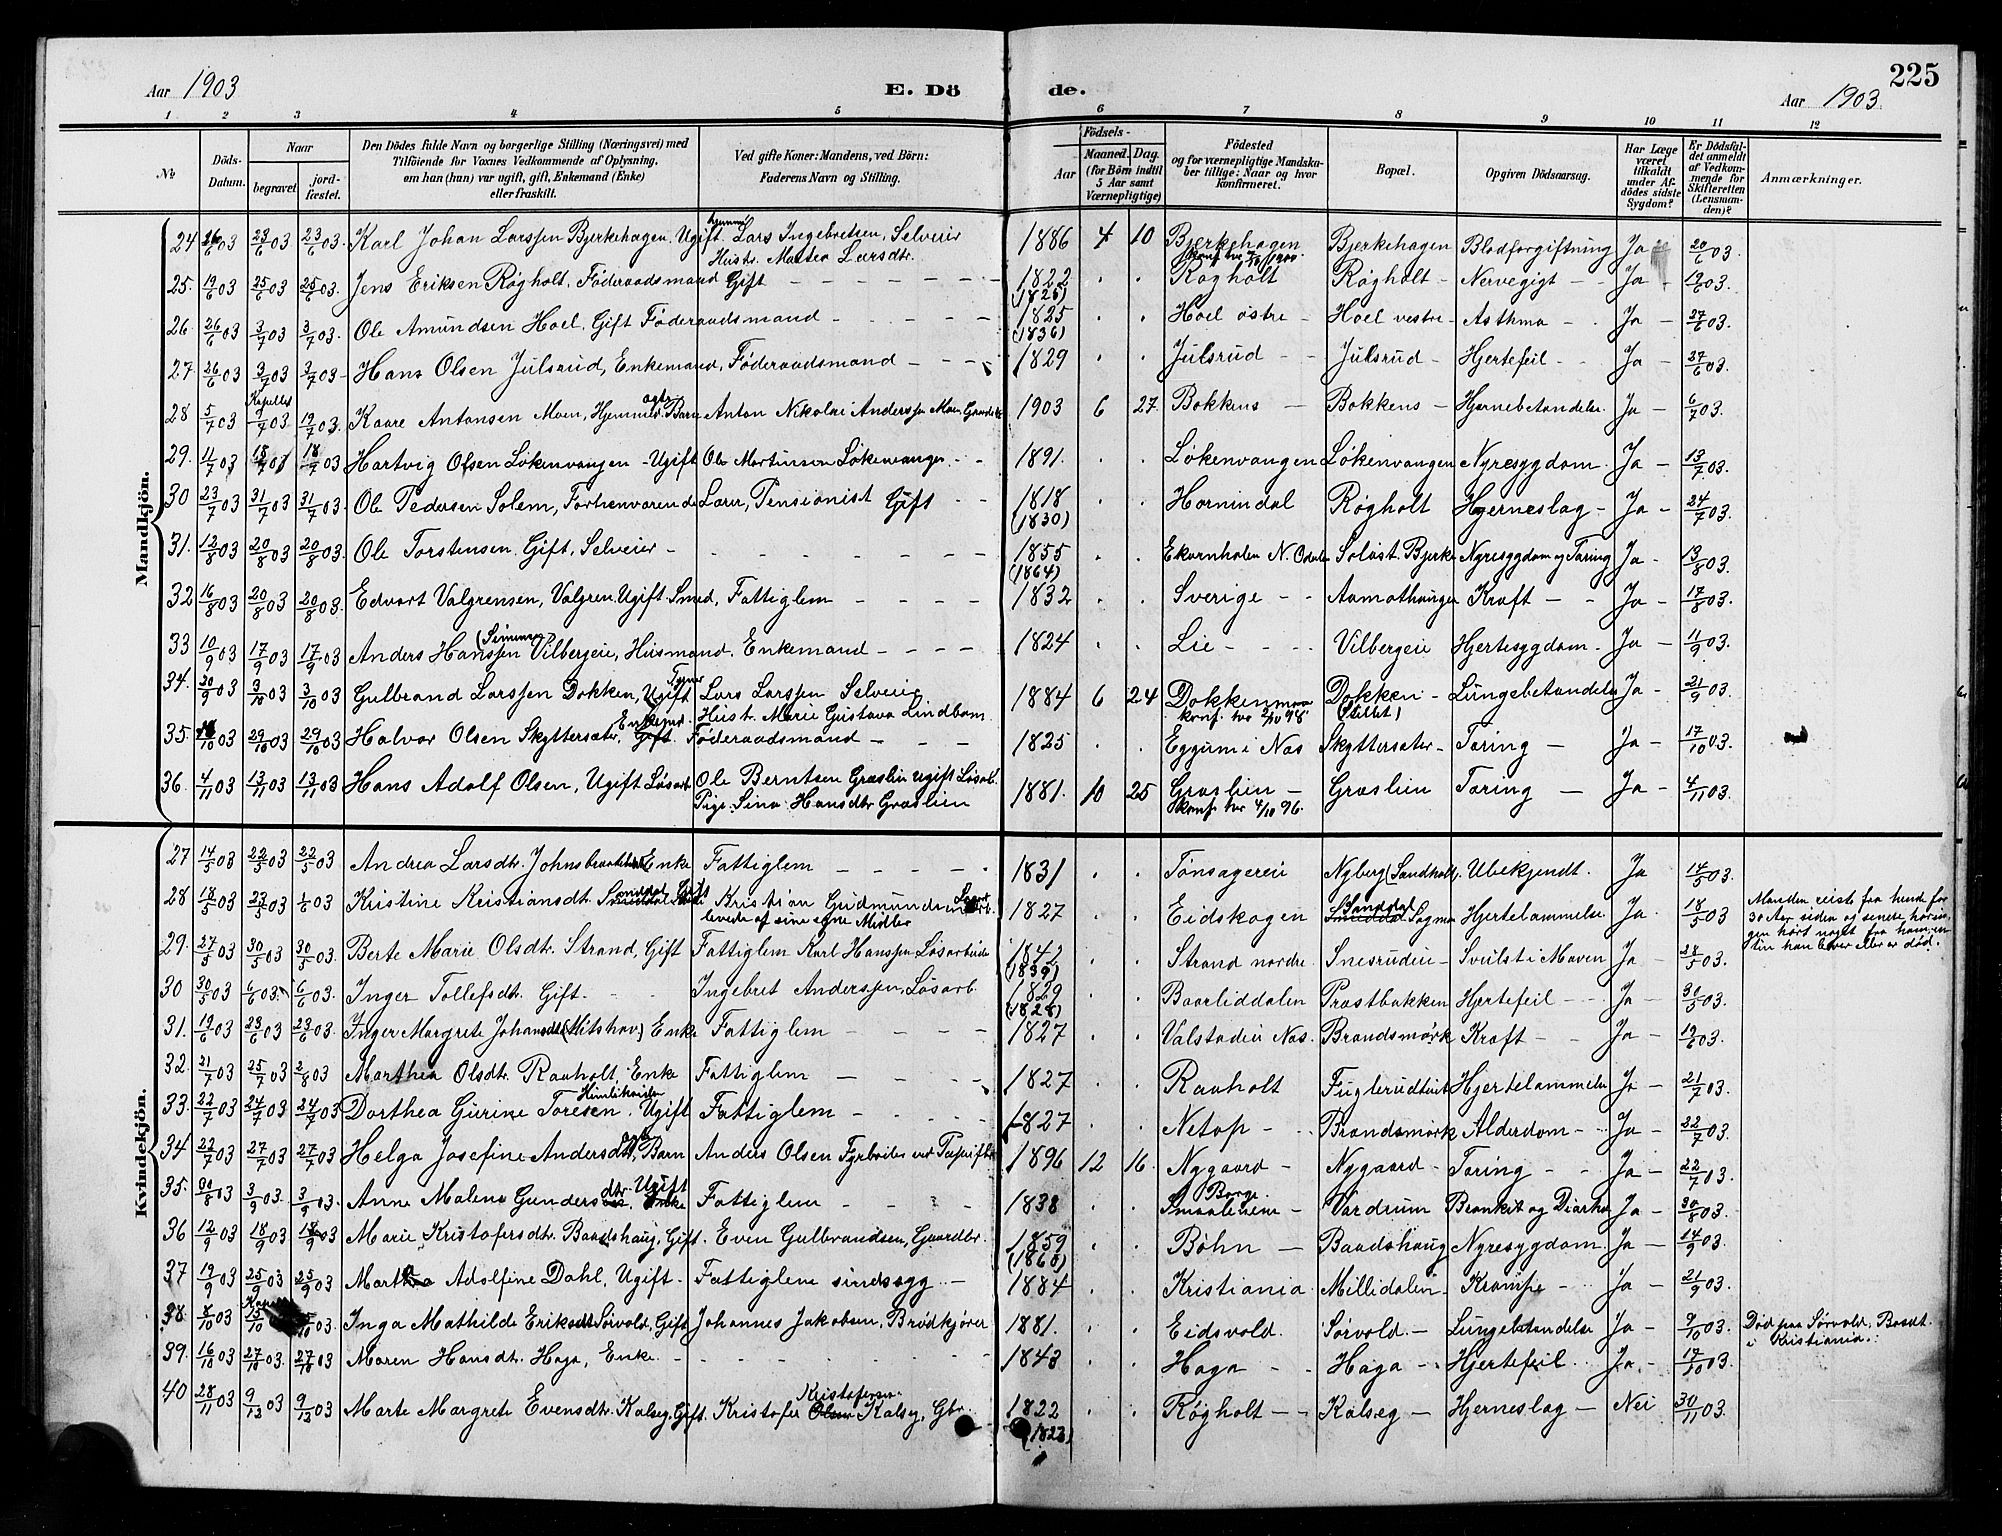 225
Aar 1903
E. Dö de.
Aar 1903.
1 2 3 4 5 6 7 8 9 10 11 12
№
Döds-Datum.
Naar
begravet
jordfæstet.
Den Dödes fulde Navn og borgerlige Stilling (Næringsvei) med
Tilföiende for Voxnes Vedkommende af Oplysning,
om han (hun) var ugift, gift, Enkemand (Enke)
eller fraskilt.
Ved gifte Koner: Mandens, ved Börn:
Faderens Navn og Stilling.
Födsels-
Aar
Maaned. Dag.
(for Börn indtil
5 Aar samt
Værnepligtige)
Födested
og for værnepligtige Mandska-
ber tillige: Naar og hvor
konfirmeret.
Bopæl.
Opgiven Dödsaarsag.
Har Læge
været
tilkaldt
under Af-
dödes sidste
Sygdom?
Er Dödsfal-
det anmeldt
af Vedkom-
mende for
Skifteretten
(Lensman-
den)?
Anmærkninger.
Mandkjön.
24 23/6 03 23/6 03. Karl Johan Larssen Bjerkehagen. Ugift. Lars Ingebretsen, Selveier 1886 4 10 Bjerkehagen Bjerkehagen Blodforgiftning Ja 20/6 03.
Hustr. Mathea Larsdtr.
25. 19/6 03 25/6 03 25/6 03. Jens Eriksen Røgholt, Föderaadsmand Gift 1822 Røgholt Røgholt Nervegigt Ja 19/6 03.
(1826)
26. 26/6 03 3/7 03 3/7 03. Ole Amundsen Hoel, Gift Föderaadsmand 1825 Hoel østre Hoel vestre Asthma Ja 27/6 03.
(1836)
27 26/6 03 3/7 03 3/7 03 Hans Olsen Julsrud, Enkemand, Föderaadsmand 1829 Julsrud Julsrud Hjertefeil Ja 27/6 03.
28 5/7 03 19/7 03. Kaare Antonsen Moen, Hjemmed. ægte Barn Anton Nikolai Anderssen Moen 1903 6 27 Bakkens Bakkens Hjernebetændelse. Ja 6/7 03.
29. 11/7 03 18/7 03 18/7 03 Hartvig Olsen Løkenvangen Ugift Ole Martinsen Løkenvangen 1891. Løkenvangen Løkenvangen Nyresygdom. Ja 13/7 03.
30 23/7 03 31/7 03 31/7 03. Ole Pedersen Solem, Forhenværende Lærer, Pensionist Gift 1818 Hornindal Røgholt Hjerneslag Ja 24/7 03.
(1830)
31. 12/8 03 20/8 03 20/8 03. Ole Torstensen. Gift, Selveier 1855 N. Odalen Bjerke Nyresygdom og Tæring Ja 13/8 03.
(1864)
32 16/8 03 20/8 03 20/8 03. Edvart Valgrensen, Valgren. Ugift. Smed, Fattiglem 1832 Sverige Aamothaugen Kræft Ja 17/8 03.
33 10/9 03 17/9 03 17/9 03 Anders Hanssen (Simensen) Vilbergeie, Husmand. Enkemand 1824 Lie Vilbergeie Hjertesygdom. Ja 11/9 03.
34. 20/9 03 3/10 03 3/10 03 Gulbrand Larssen Dokken, Ugift Lars Larssen Selveier 1884 6 24 Dokken Dokken Lungebetændelse Ja 21/9 03.
Hust. Marie Gustava Lindbom
35. 29/10 03 29/10 03 Halvor Olsen Skyttersæter, Enkemd. Gift. Föderaadsmand 1825 Eggum i Næs Skyttersæter Tæring Ja 17/10 03.
36. 4/11 03 13/11 03 13/11 03 Hans Adolf Olsen, Ugift Løsarb Ole Berntsen Græslien ugift Løsarb. 1881. 10 25 Græslien Græslien Tæring Ja 4/11 03.
Pige Sina Hansdtr Græslien konf. her 4/10 96.
Kvindekjön.
27 14/5 03 22/5 03 22/5 03 Andrea Larsdtr. Enke Fattiglem 1831 Tønsagereie Nyberg (Sandholt). Ubekjendt. Ja 14/5 03.
28 18/5 03 27/5 03 1/6 03 Kristine Kristiansdt Sanddal Gift Kristian Gudmundsen 1827 Eidskogen Sanddal Hjertelammelse Ja. 18/5 03 Manden reiste fra hende for
levede af sine egne Midler 30 Aar siden og senere har in-
gen hørt noget fra ham, en-
ten han lever eller er død.
29. 27/5 03 30/5 03 30/5 03. Berte Marie Olsdtr. Strand, Gift Fattiglem Karl Hanssen Løsarbeider 1842 Strand nordre Snesrudeie Svulst i Maven Ja 28/5 03.
(1839)
30 30/5 03 6/6 03. 6/6 03. Inger Tollefsdt. Gift. Ingebret Anderssen, Løsarb. 1829 Baarliddalen Præstbakken Hjertefeil Ja 30/5 03.
(1828)
31. 19/6 03 23/6 03 23/6 03. Inger Margrete Enke Fattiglem 1827 Valstadeie Næs. Brandsmørk Kræft Ja 19/6 03.
32. 21/7 03 25/7 03 2/8 03 Marthea Olsdtr. Raaholt Enke Fattiglem 1827 Raaholt Hjertelammelse Ja 21/7 03.
33. 22/7 03 24/7 03 24/7 03 Dorthea Gurine Toresen. Ugift Fattiglem 1827 Netop Brandsmørk Alderdom Ja 22/7 03.
34 22/7 03 27/7 03 27/7 03 Helga Josefine Andersdt. Barn Anders Olsen Fyrbøder ved Papirfabr 1896 12 16 Nygaard Nygaard Tæring Ja 22/7 03.
35. 30/8 03 3/9 03. 3/9 03. Anne Malene Gundersdtr. Ugift Fattiglem 1838 Borge. Smaalenene Vardrum Bronkit og Diarhe Ja 30/8 03.
36 12/9 03 18/9 03 18/9 03 Marie Kristofersdtr. Baadshaug, Gift. Even Gulbrandsen, Gaardbr. 1859 Bøhn Baadshaug Nyresygdom. Ja 14/9 03.
(1860)
37 19/9 03 25/9 03 25/9 03 Martha Adolfine Dahl, Ugift Fattiglem sindssyg 1884 Kristiania Millidalen Krampe Ja 21/9 03.
38 8/10 03 15/10 03. Inga Mathilde Eriksdt Sørvold, Gift Johannes Jakobsen, Brødkjører 1881. Eidsvold. Sørvold. Lungebetændelse Ja 9/10 03. Død paa Sørvold. Bosat.
i Kristiania.
39. 16/10 03 27/10 03. 27/10 03 Maren Hansdt. Haga, Enke. 1843 Haga Haga Hjertefeil Ja. 17/10 03.
40 28/11 03 9/12 03 9/12 03 Marte Margrete Evensdtr. Kalseg. Gift. Kristofer Kristofersen Kalseg, Gbr. 1822 Røgholt Kalseg Hjerneslag Nei 30/11 03.
(1823)